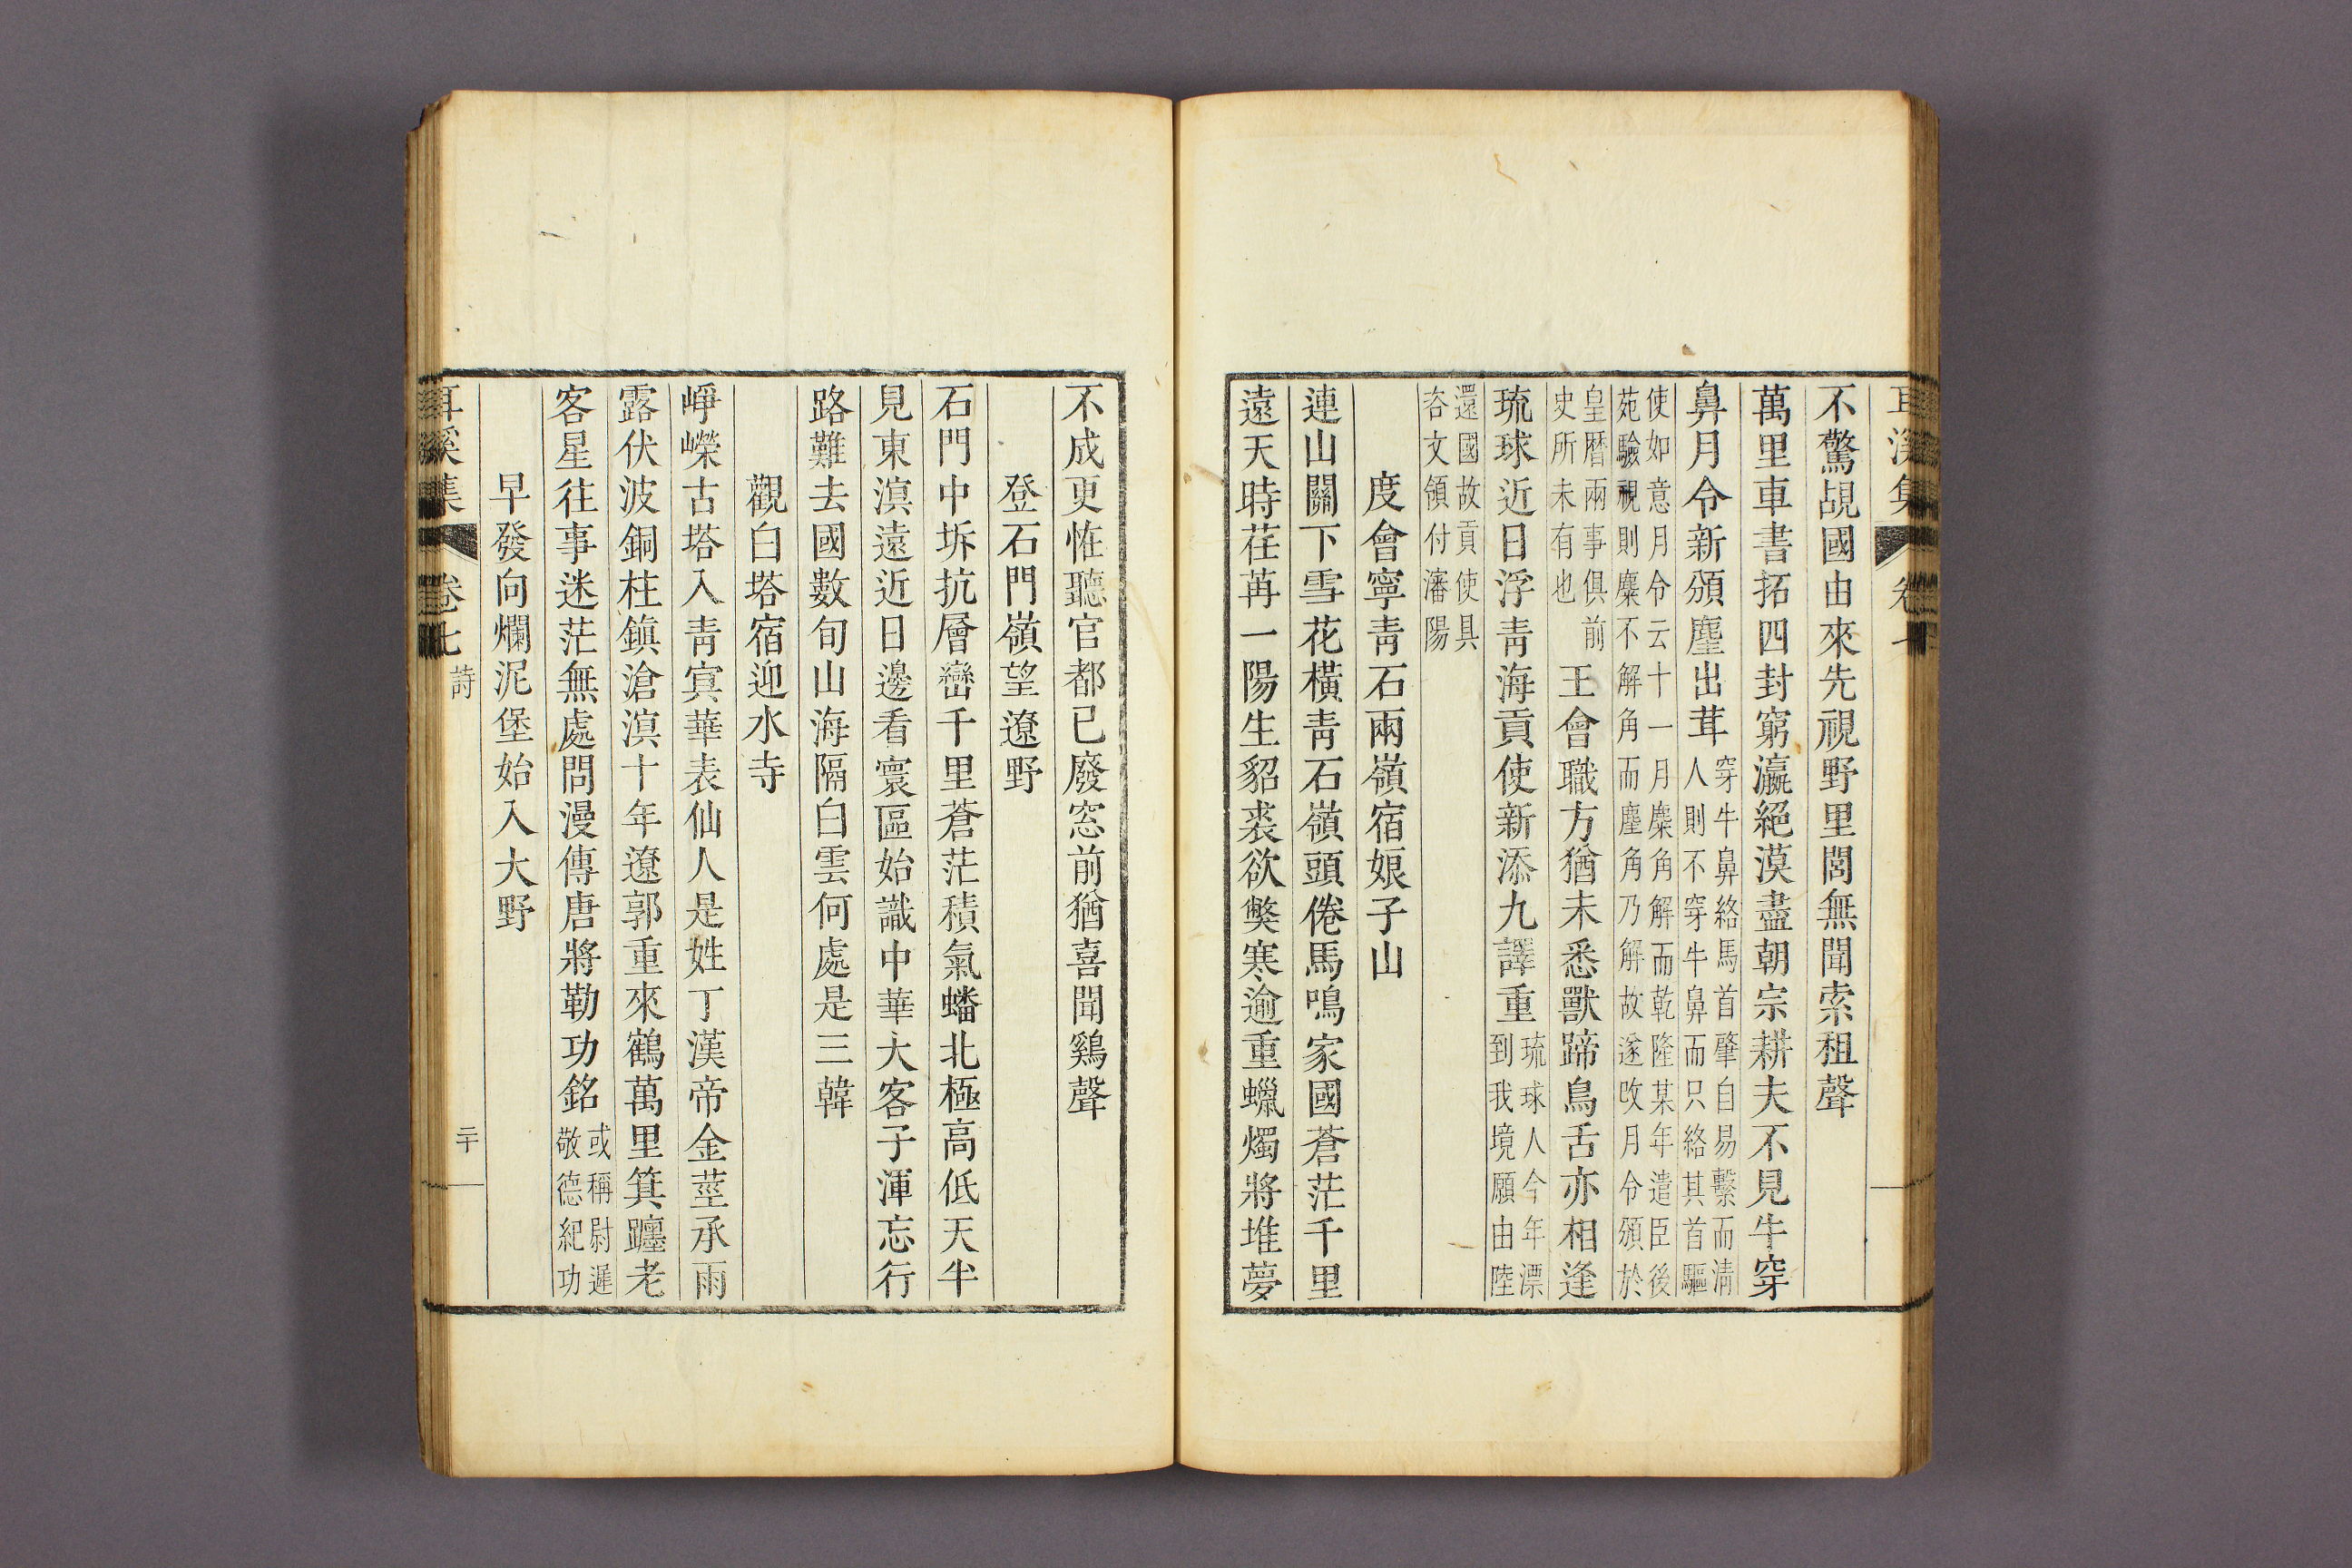 耳溪集 卷七
不驚覘國由來先視野里閭無聞索租聲
萬里車書拓四封窮瀛絕漠盡朝宗耕夫不見牛穿
鼻月令新頒麈出茸穿牛鼻絡馬首肇自易繫而淸
人則不穿牛鼻而只絡其首驅
使如意月令云十一月麋角解而乾隆某年遣臣後
苑驗視則麋不解角而麈角乃解故遂改月令頒於
皇曆兩事俱前
史所未有也王會職方猶未悉獸蹄鳥舌亦相逢
琉球近日浮靑海貢使新添九譯重琉球人今年漂
到我境願由陸
還國故貢使具
咨文領付瀋陽
度會寧靑石兩嶺宿娘子山
連山關下雪花橫靑石嶺頭倦馬鳴家國蒼茫千里
遠天時荏苒一陽生貂裘欲獘寒逾重蠟燭將堆夢
不成更恠聽官都已廢窓前猶喜聞鷄聲
登石門嶺望遼野
石門中坼抗層巒千里蒼茫積氣蟠北極高低天半
見東溟遠近日邊看寰區始識中華大客子渾忘行
路難去國數旬山海隔白雲何處是三韓
觀白塔宿迎水寺
崢嶸古塔入靑冥華表仙人是姓丁漢帝金莖承雨
露伏波銅柱鎭滄溟十年遼郭重來鶴萬里箕躔老
客星往事迷茫無處問漫傳唐將勒功銘或稱尉遲
敬德紀功
早發向爛泥堡始入大野
耳溪集 卷七 詩 二十